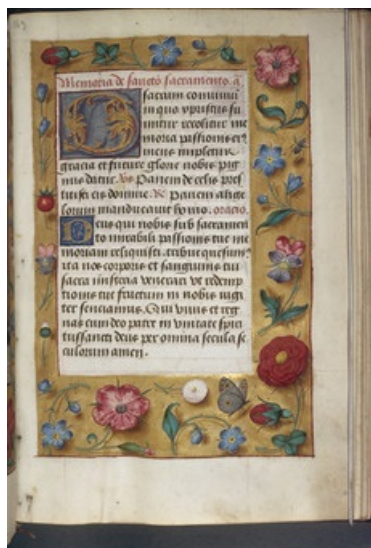 Memoria de sancto sacramento. a
O sacrum conuiui
in quo xpristus su
mitur recolitur me
moria passionis ei
mens impletur
gracia et future glorie nobis pig
nus datur. Vs Panem de celis pres
titisti eis domine. R Panem ange
lorum manducauit homo. oracio.
Deus qui nobis sub sacramen
to mirabili passionis tue me
moriam reliquisti. tribue quesum
ita nos corporis et sanguinis tui
sacra misteria venerari vt redemp
tionis tue fructum in nobis iugi
ter senciamus. Qui viuis et reg
nas cum deo patre in vnitate spiri
tussancti deus per omnia secula se
culorum amen.